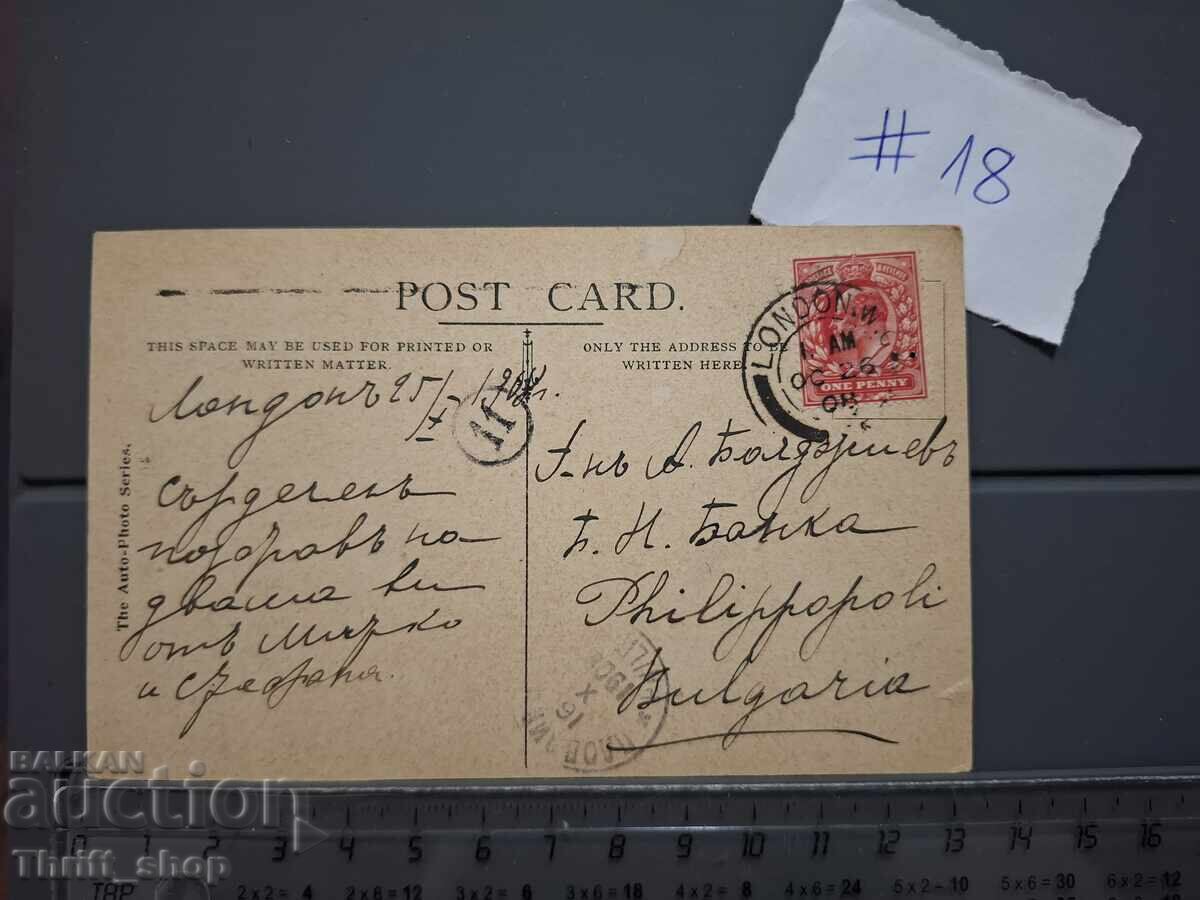 # 18
POST CARD.
THIS SPACE MAY BE USED FOR PRINTED OR
WRITTEN MATTER.
ONLY THE ADDRESS TO BE
WRITTEN HERE
The Auto-Photo Series.
LONDON. W
1 AM
OC 26
08
ONE PENNY
11
Лондонъ 25/X-1908 г.
Сърдеченъ
поздравъ на
двама ви
отъ Мирко
и
Г-нъ А. Балджиевъ
Б. Н. Банка
Philippopoli
Bulgaria
ПЛОВДИВ
16 X 1908
BALKAN
auction
Thrift_shop
0 1 2 3 4 5 6 7 8 9 10 11 12 13 14 15 16
2 x 2 = 4 2 x 6 = 12 3 x 2 = 6 3 x 6 = 18 4 x 2 = 8 4 x 6 = 24 5 x 2 = 10 5 x 6 = 30 6 x 2 = 12